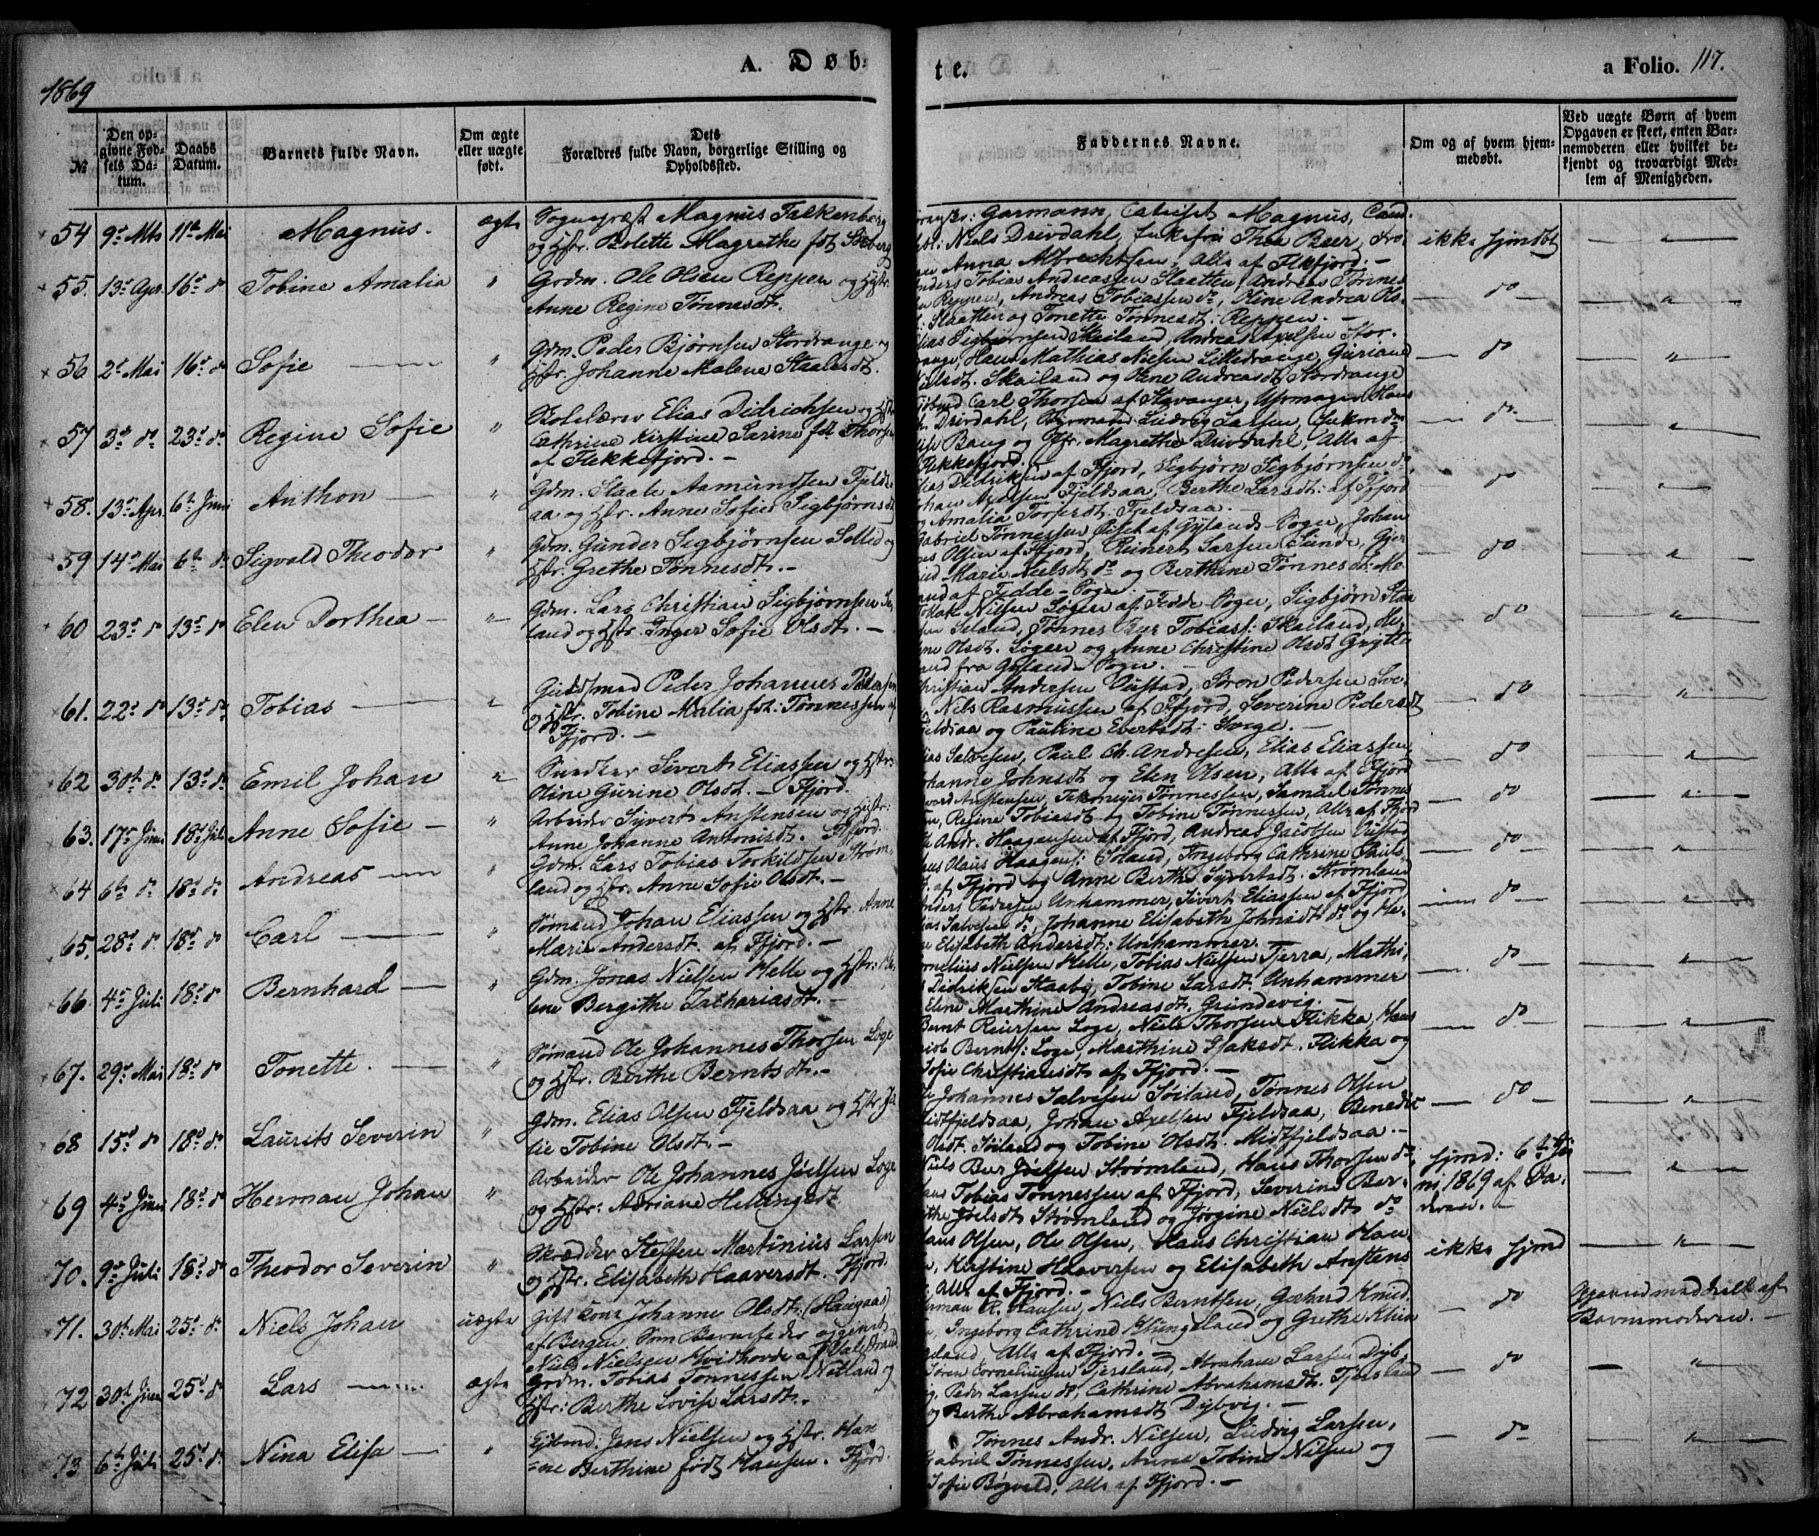 1869
A. Døb-
te.
a Folio. 117.
No
Den op-
givne Fød-
sels Da-
tum.
Daabs
Datum.
Barnets fulde Navn.
Om ægte
eller uægte
født.
Dets
Forældres fulde Navn, borgerlige Stilling og
Opholdssted.
Faddernes Navne.
Om og af hvem hjem-
medøbt.
Ved uægte Børn af hvem
Opgaven er skeet, enten Bar-
nemoderen eller hvilket be-
kjendt og troværdigt Med-
lem af Menigheden.
54 9de Mts 11te Mai Magnus. ægte
Sognepræst Magnus Falkenberg
og Hstr. Bolette Magrethe fdt Sørberg
Garmann, Magnus, Cand.
Niels Drivdahl, Enkefru Thea Beer,
Anna Albrechtsen, Alle af Flkfjord. —
ikke hjmdbt — " —
55. 13de Apr 16de do Tobine Amalia "
Grdm. Ole Olsen Reppen og Hstr.
Anne Regine Tønnesdt.
Tobias Andreassen Slaatten, Andreas Tønnes-
Reppen, Andreas Tobiassen do, Oline Andrea Ols-
Slaatten og Tonette Tønnesdt. Reppen. —
— do — — " —
56. 2de Mai 16de do Sofie — "
Gdm. Peder Bjørnsen Stordrange og
Hstr. Johanne Malene Staalesdt.
Sigbjørnsen Skailand, Andreas Axelsen Stor-
ange, Hans Mathias Nielsen Lilledrange, Guriane
Nielsdt. Skailand og Andreasdt Stordrange
— do — — " —
57 3de do 23de do Regine Sofie "
Elias Didrichsen og Hstr
Cathrine Kirstine Sarine fdt Thorsen
af Flekkefjord. —
Carl Thorsen af Stavanger, Uhrmager Hans
Drivdahl, Styrmand Ludvig Larsen,
Baug og Magrethe Drivdahl, Alle af
Flekkefjord. —
— do — — " —
58. 13de Apr 6te Juni Anthon — "
Gdm. Staale Aamundsen Fjelds-
aa og Hstr. Anne Sofie Sigbjørnsdt
Elias Didriksen af Ffjord, Sigbjørn Sigbjørnsen do,
Johan Axelsen Fjeldsaa, Berthe Larsdt: af Ffjord
og Amalia Torjersdt. Fjeldsaa. —
— do — — " —
59 14de Mai 6te do Sigvald Theodor "
Gdm. Gunder Sigbjørnsen Solled og
Hstr. Grethe Tønnesdt. —
Gabriel Tønnessen af Gylands Sogn, Johan-
nes Olsen af Ffjord, Reinert Larsen Eiunde, Gjer-
Marie Nielsdt do og Berthine Tønnesdt: Mo-
land af Fedde Sogn. —
— do — — " —
60 23de do 13de do Elen Dorthea — "
Gdm. Lars Christian Sigbjørnsen Se-
land og Hstr. Inger Sofie Olsdt. —
Nilsen Løgen af Fedde Sogn, Sigbjørn Staa-
Seland, Tønnes Tobiass: Skailand, He-
Olsdt. Løgen og Anne Christine Olsdt
land fra Gylands Sogn. —
— do — — " —
61. 22de do 13de do Tobias — "
Peder Johannes Pedersen
og Hstr. Tobine Malia fdt: Tønnessen af
Ffjord. —
Christian Andersen Øiestad, Søren Pedersen Sve-
Niels Rasmussen af Ffjord, Severine Pedersdt
Fjeldsaa og Pauline Evertsdt: Svege. —
— do — — " —
62 30te do 13de do Emil Johan "
Snedker Sivert Eliassen og Hstr:
Oline Gurine Olsdt. — Ffjord.
Elias Salvesen, Paul Ch. Andresen, Elias Eliassen,
Johanne Johnsdt og Elen Olsen, Alle af Ffjord
— do — — " —
63. 17de Juni 18de Juli Anne Sofie — "
Arbeider Syvert Anstensen og Hstr:
Anne Johanne Antonisdt. Ffjord.
Anstensen, Tønnessen, Samuel Tønnes-
Regine Tobiasdt og Tobine Tønnessen, Alle af Ffjord
— do — — " —
64 6te do 18de do Andreas — "
Gdm. Lars Tobias Torkildsen Strøm-
land og Hstr. Anne Sofie Olsdt. —
Andr. Haagensen af Ffjord, Andreas Jacobsen Øiestad
Olaus Haagens: Soland, Ingeborg Cathrine Pauls-
af Ffjord og Anne Berthe Syvertsdt. Strømland
— do — — " —
65. 28de do 18de do Carl — "
Sømand Johan Eliassen og Hstr. Anne
Marie Andersdt. af Ffjord. —
Anders Pedersen Unhammer, Sivert Eliassen af Ffjord
Salvesen do, Johanne Elisabeth Johnsdt do og He-
Elisabeth Andersdt: Unhammer —
— do — — " —
66. 4de Juli 18de do Bernhard — "
Gdm. Jonas Nielsen Helle og Hstr: He-
lene Bergithe Zachariasdt. —
Cornelius Nielsen Helle, Tobias Nielsen Tjerra, Mathi-
Didriksen Staaby, Tobine Larsdt. Unhammer
Eline Marthine Andreasdt. Grundevig. —
— do — — " —
67. 29de Mai 18de do Tonette. — "
Sømand Ole Johannes Thorsen Loge
og Hstr: Berthe Berntsdt. —
Bernt Reiersen Loge, Niels Thorsen Flikka, Hans
Jacob Bernts: Loge, Marthine Isaksdt. Flikka og
Sofie Christiansdt af Ffjord. —
— do — — " —
68 15de do 18de do Laurits Severin "
Gdm. Elias Olsen Fjeldsaa og Hstr. Ja-
Tobine Olsdt. —
Johannes Salvesen Søiland, Tønnes Olsen
Midtfjeldsaa, Johan Axelsen Fjeldsaa, Benedik-
Olsdt. Søiland og Tobine Olsdt. Midtfjeldsaa. —
— do — — " —
69 4de Juni 18de do Herman Johan "
Arbeider Ole Johannes Joelsen Loge
og Hstr: Adriane Hellingsdt. —
Niels Joelsen Strømland, Hans Thorsen do,
Tobias Tønnessen af Ffjord, Severine Ber-
Joelsdt Strømland og Jørgine Nielsdt. do
hjmd: 6te Ju-
ni 1869 af Fa-
deren. — — " —
70. 9de Juli 18de do Theodor Severin "
Skrædder Steffen Martinius Larsen
og Hstr: Elisabeth Haaversdt. Ffjord.
Hans Olsen, Ole Olsen, Hans Christian Han-
Kristine Haaversen og Elisabeth Anstens-
Alle af Ffjord. —
ikke hjmd — " —
71. 30te Mai 25de do Niels Johan uægte
Gift Kone Johanne Olsdt. (Haugaas)
af Bergen. Som Barnefader opgivet
Niels Nielsen Hvidhovde af
Herman R. Hansen, Niels Berntsen, Gerhard Knud-
Ingeborg Cathrine Klungeland og Grethe Klun-
geland. Alle af Ffjord. —
— do — Opgivende med Attest af
Barnemoderen. —
72 30te Juni 25de do Lars — ægte
Grdm. Tobias Tønnessen Netland og
Hstr: Berthe Lovise Larsdt. —
Søren Corneliussen Fjersland, Abraham Larsen Dyb-
Peder Larsen do, Cathrine Abrahamsdt. Fjersland
og Berthe Abrahamsdt Dybvig. —
— do — — " —
73 6te Juli 25de do Nina Elise — "
Jens Nielsen og Hstr. Han-
ne Berthine født Hansen. Ffjord.
Tønnes Andr. Nilsen, Ludvig Larsen,
Gabriel Tønnessen, Anne Tobine Nilsen og
Sofie Bøgvald, Alle af Ffjord. —
— do — — " —